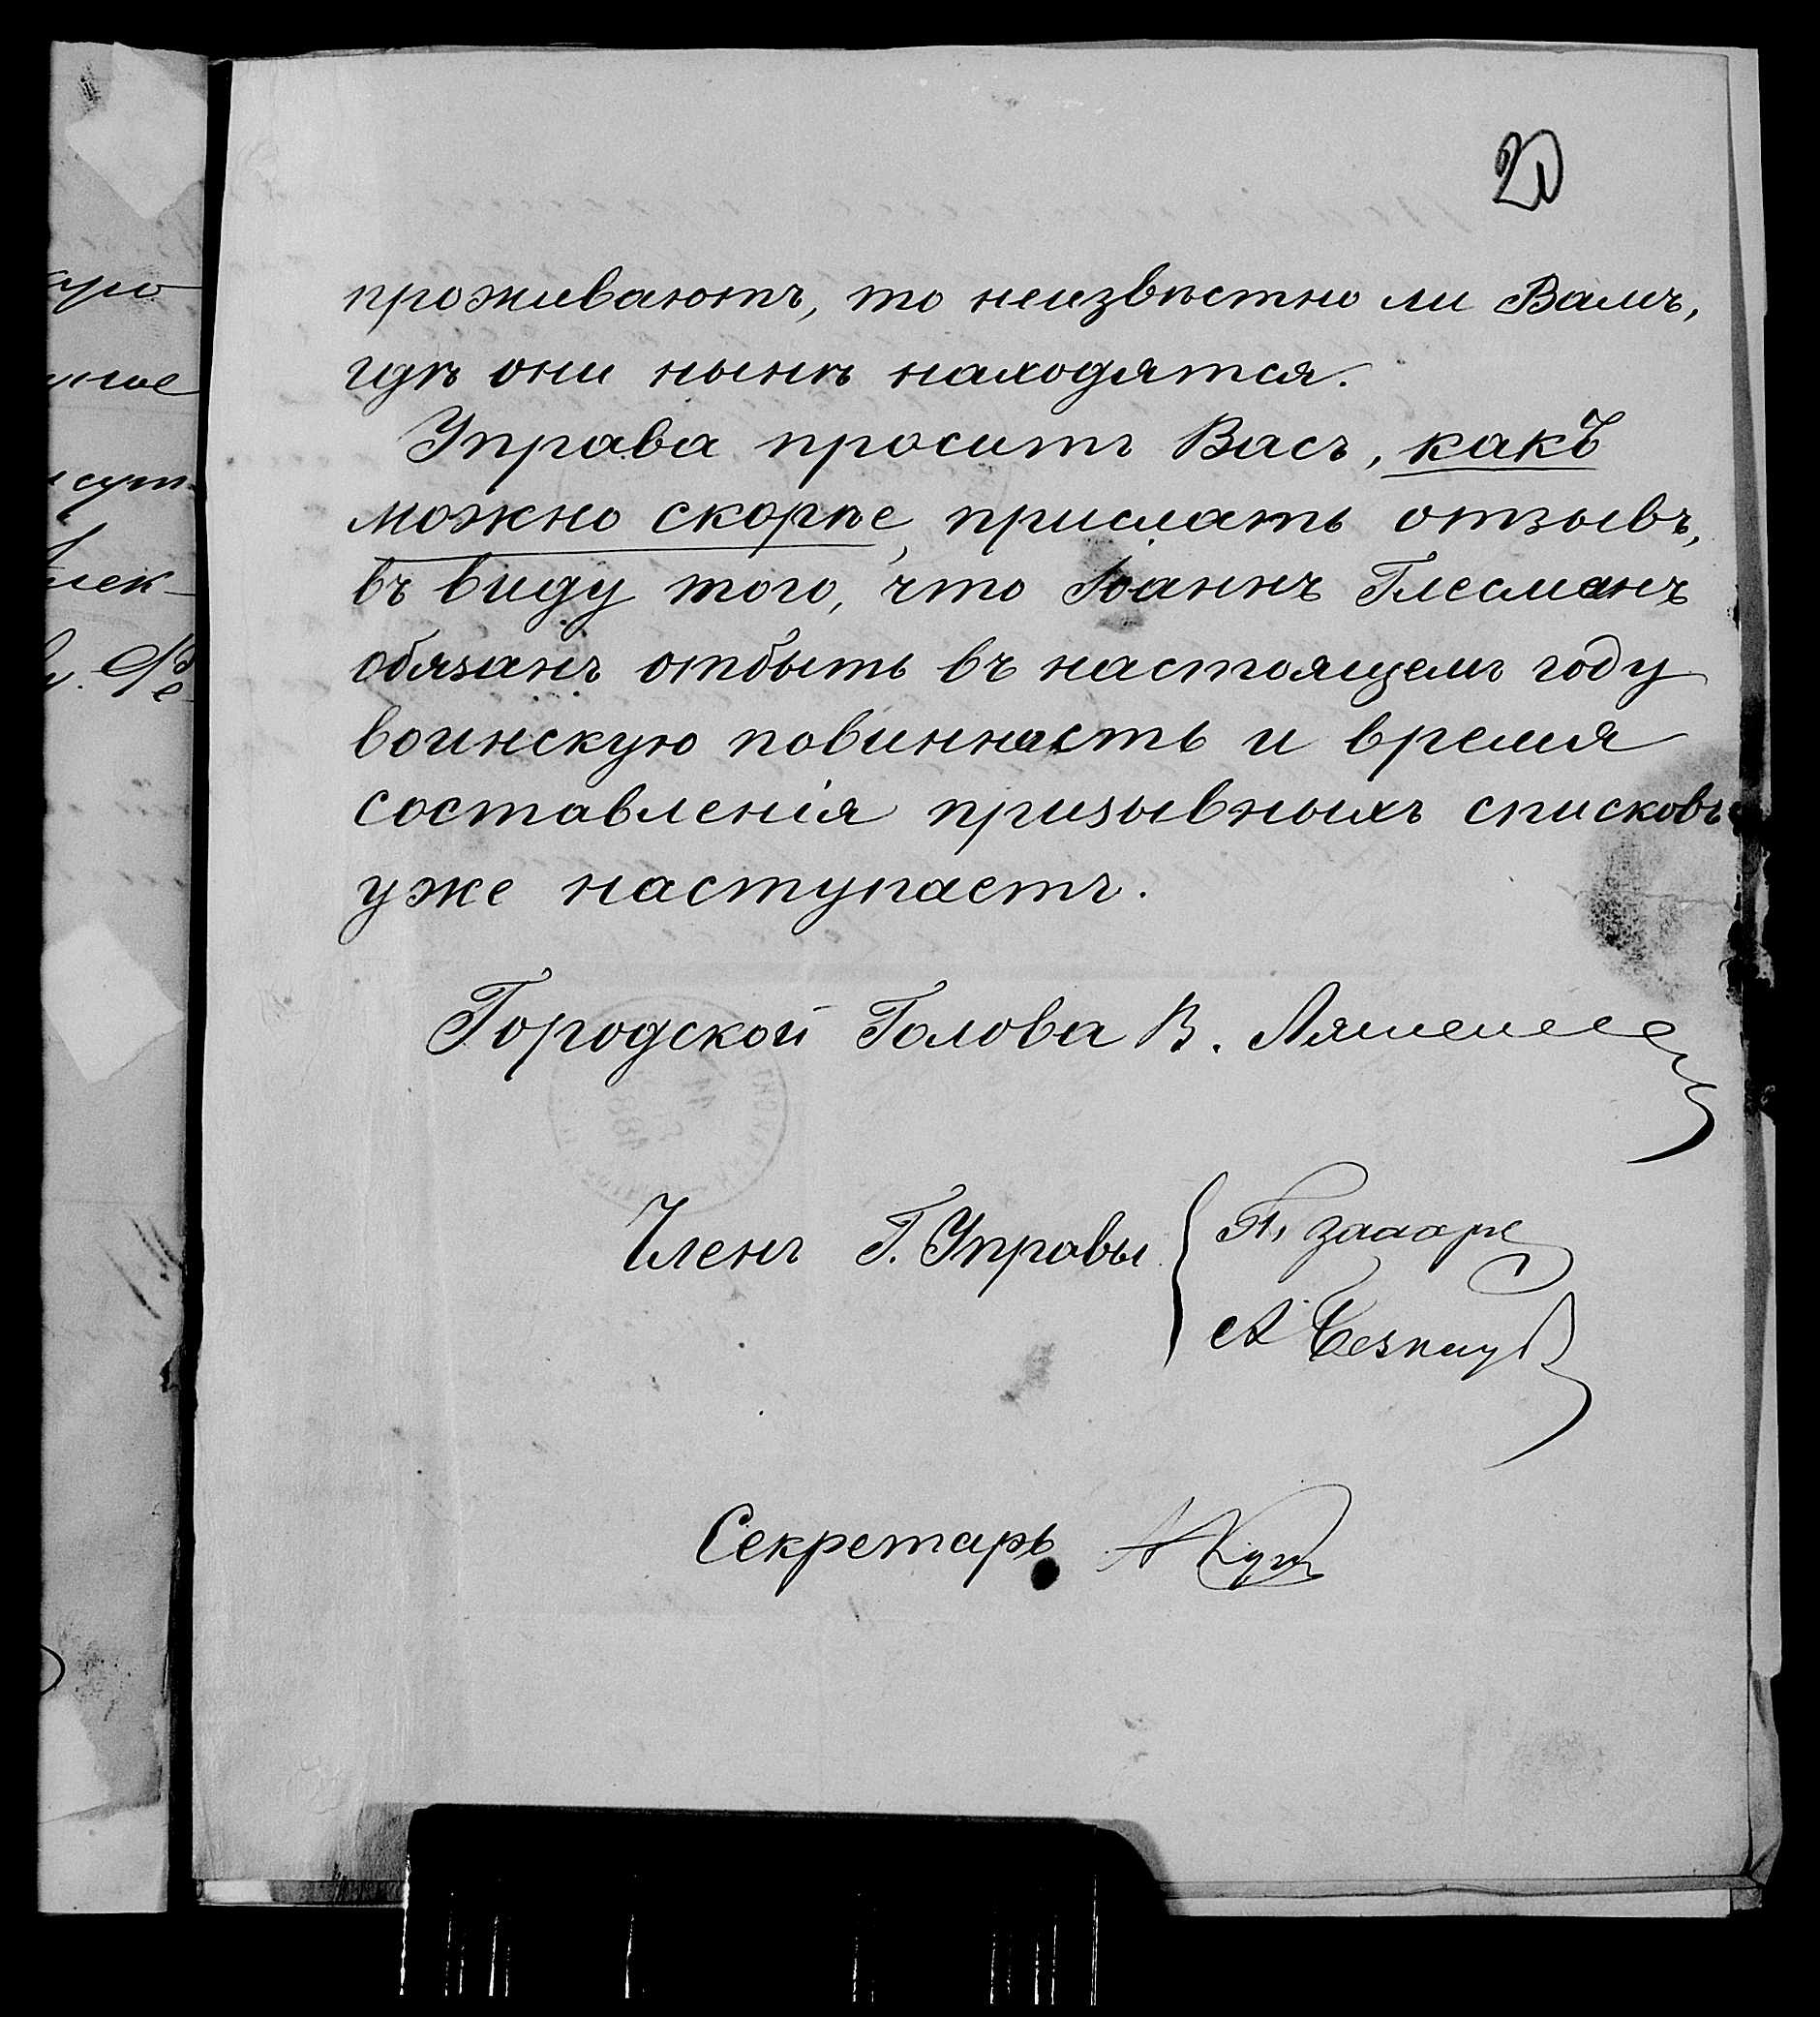 20
проживаютъ, то неизвѣстно ли Вамъ,
гдѣ они нынѣ находятся.
Управа проситъ Васъ, какъ
можно скорѣе, прислать отзывъ,
въ виду того, что Іоаннъ Глесманъ
обязанъ отбыть въ настоящемъ году
воинскую повинность и время
составленія призывныхъ списковъ
уже наступаетъ.
Городской Голова В.
Членъ Г. Управы
А
Секретарь А